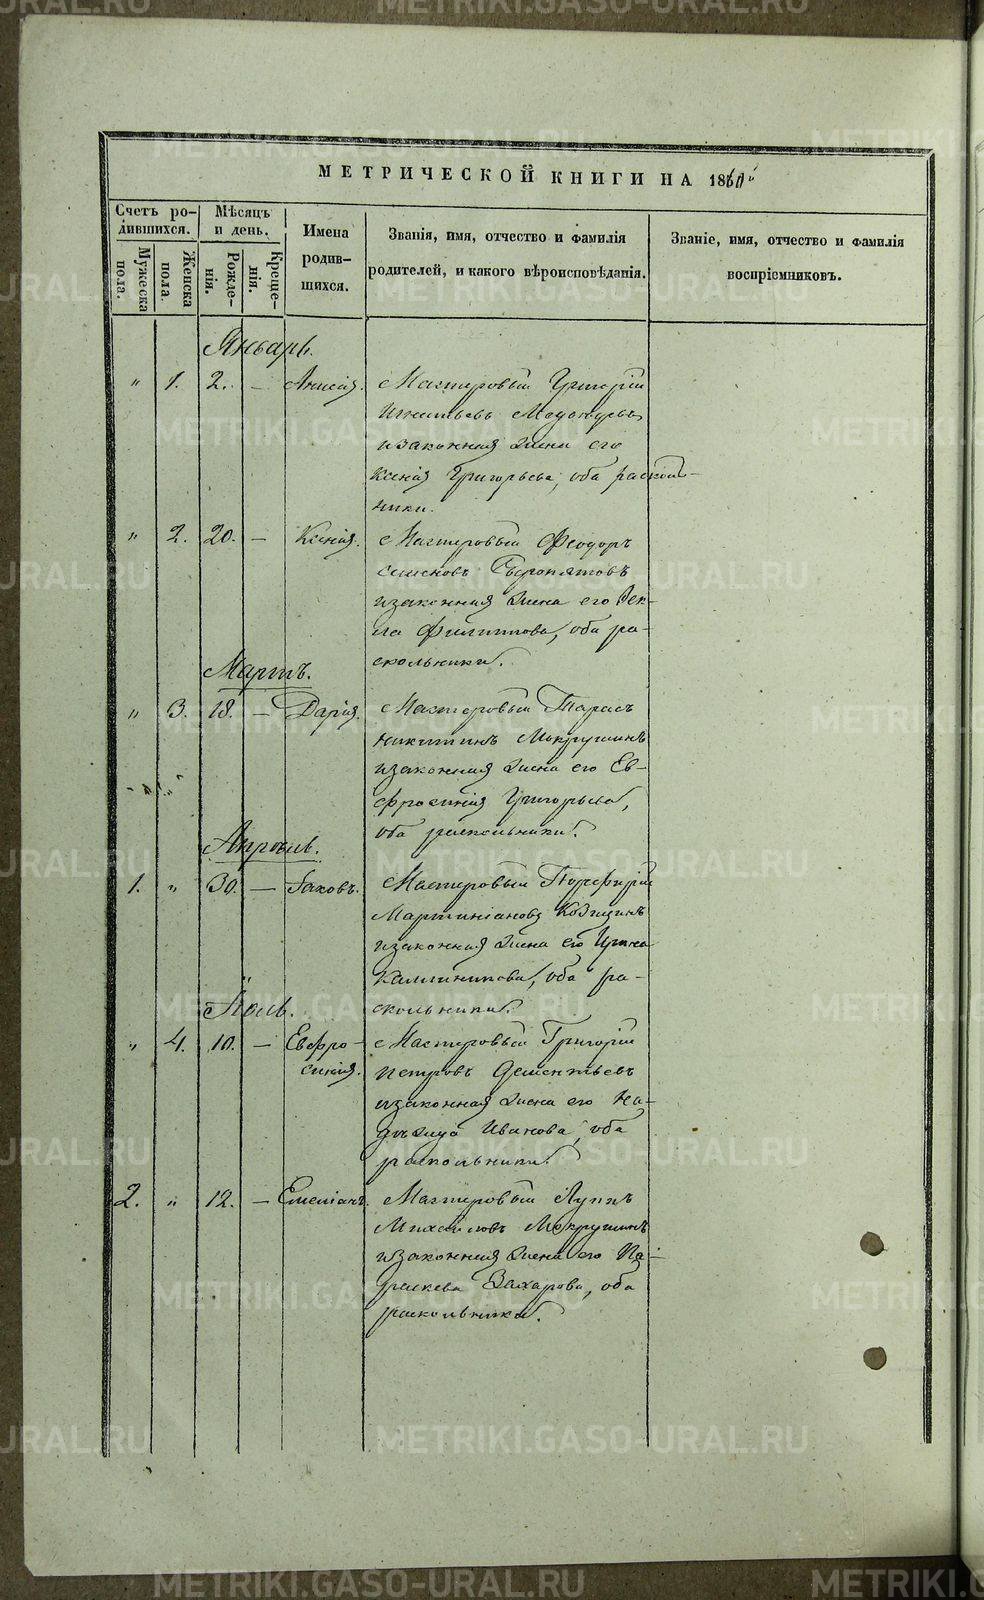 МЕТРИЧЕСКОЙ КНИГИ НА 1860й
Счетъ ро-
дившихся.
Мужеска пола.
Женска пола.
Мѣсяцъ
и день.
Рожде-
нія.
Креще-
нія.
Имена
родив-
шихся.
Званія, имя, отчество и фамилія
родителей, и какого вѣроисповѣданія.
Званіе, имя, отчество и фамилія
воспріемниковъ.
Январь.
" 1. 2. — Анисія. Мастеровый Григорій
и законная жена его
Ксенія Григорьева, оба расколь-
ники.
" 2. 20. — Ксенія. Мастеровый Феодоръ
Семеновъ
и законная жена его Фек-
ла Филиппова, оба ра-
скольники.
Мартъ.
" 3. 18. — Дарія. Мастеровый Тарасъ
Никитинъ Мокрушинъ
и законная жена его Ев-
фросинія Григорьева,
оба раскольники.
Апрѣль.
1. " 30. — Іаковъ. Мастеровый Порфирій
Мартиніановъ Козицинъ
и законная жена его Ирина
Каллиникова, оба ра-
скольники.
Іюль.
" 4. 10. — Евфро-
синія.
Мастеровый Григорій
Петровъ Дементьевъ
и законная жена его На-
дежда Иванова, оба
раскольники.
2. " 12. — Емеліанъ. Мастеровый Луппъ
Михайловъ Мокрушинъ
и законная жена его Па-
раскева Захарова, оба
раскольники.
METRIKI.GASO-URAL.RU